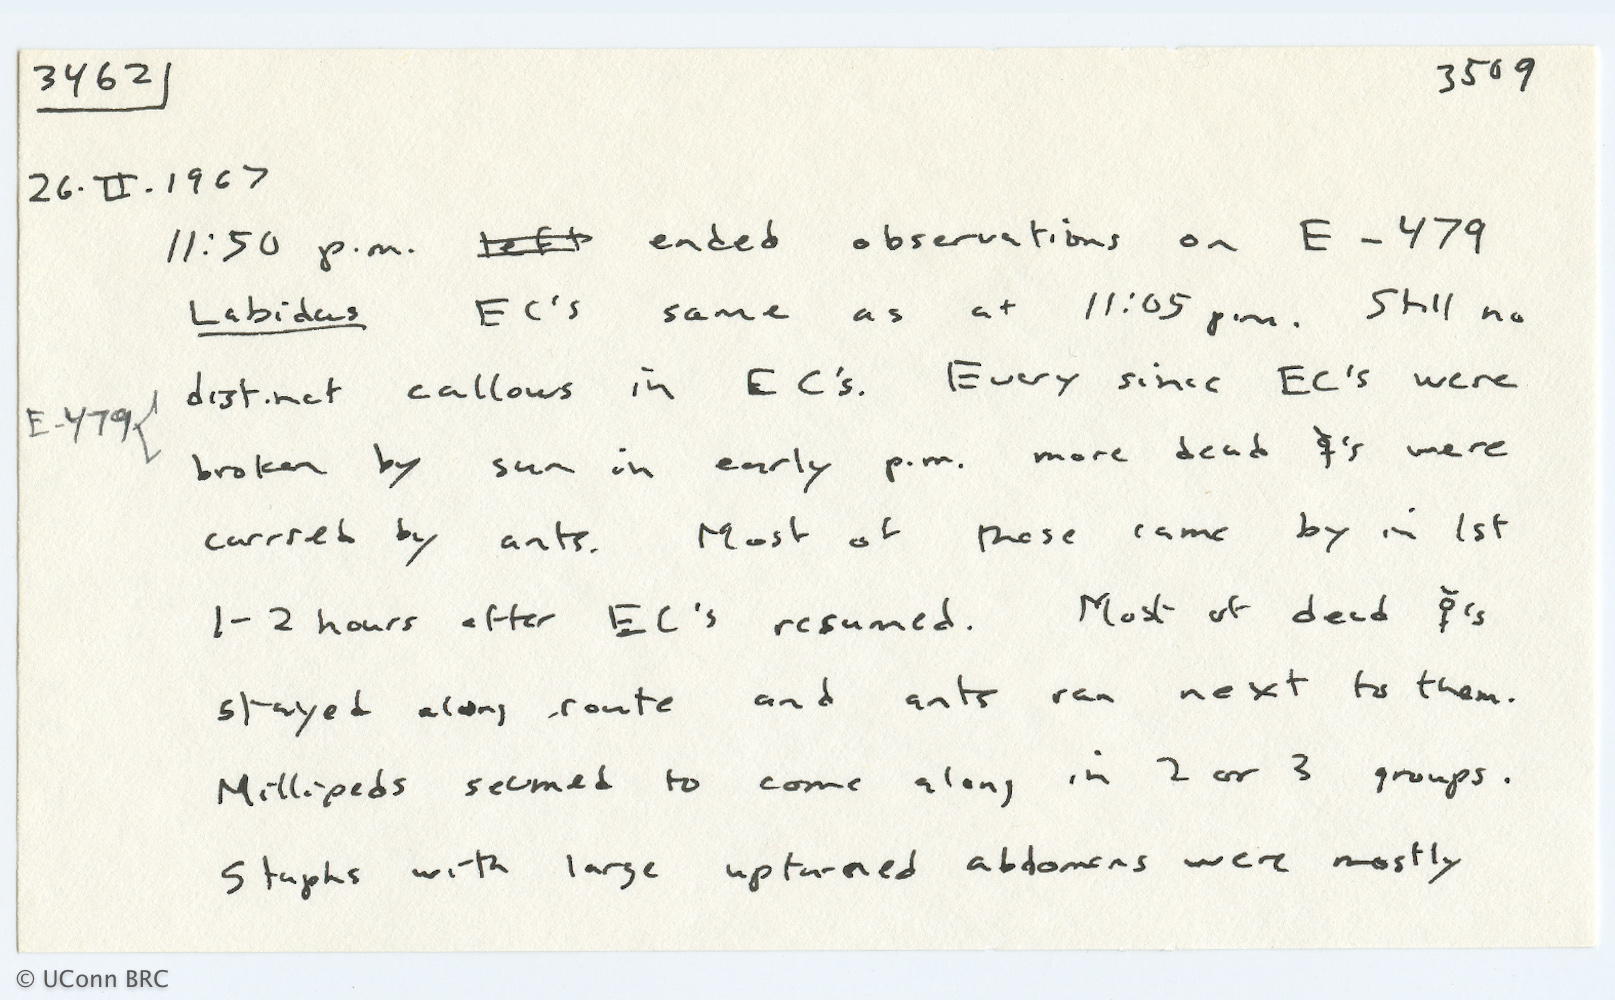 3462 3509
26.II.1967
11:50 p.m. left ended observations on E-479
Labidus EC's same as at 11:05 p.m. Still no
distinct callows in EC's. Every since EC's were
E-479
broken by sun in early p.m. more dead ☿'s were
carried by ants. Most of these came by in 1st
1-2 hours after EC's resumed. Most of dead ☿'s
stayed along route and ants ran next to them.
Millipeds seemed to come along in 2 or 3 groups.
Staphs with large upturned abdomens were mostly
© UConn BRC